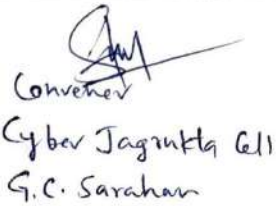 Convener
Cyber Jagrukta Cell
G.C. Sarahan